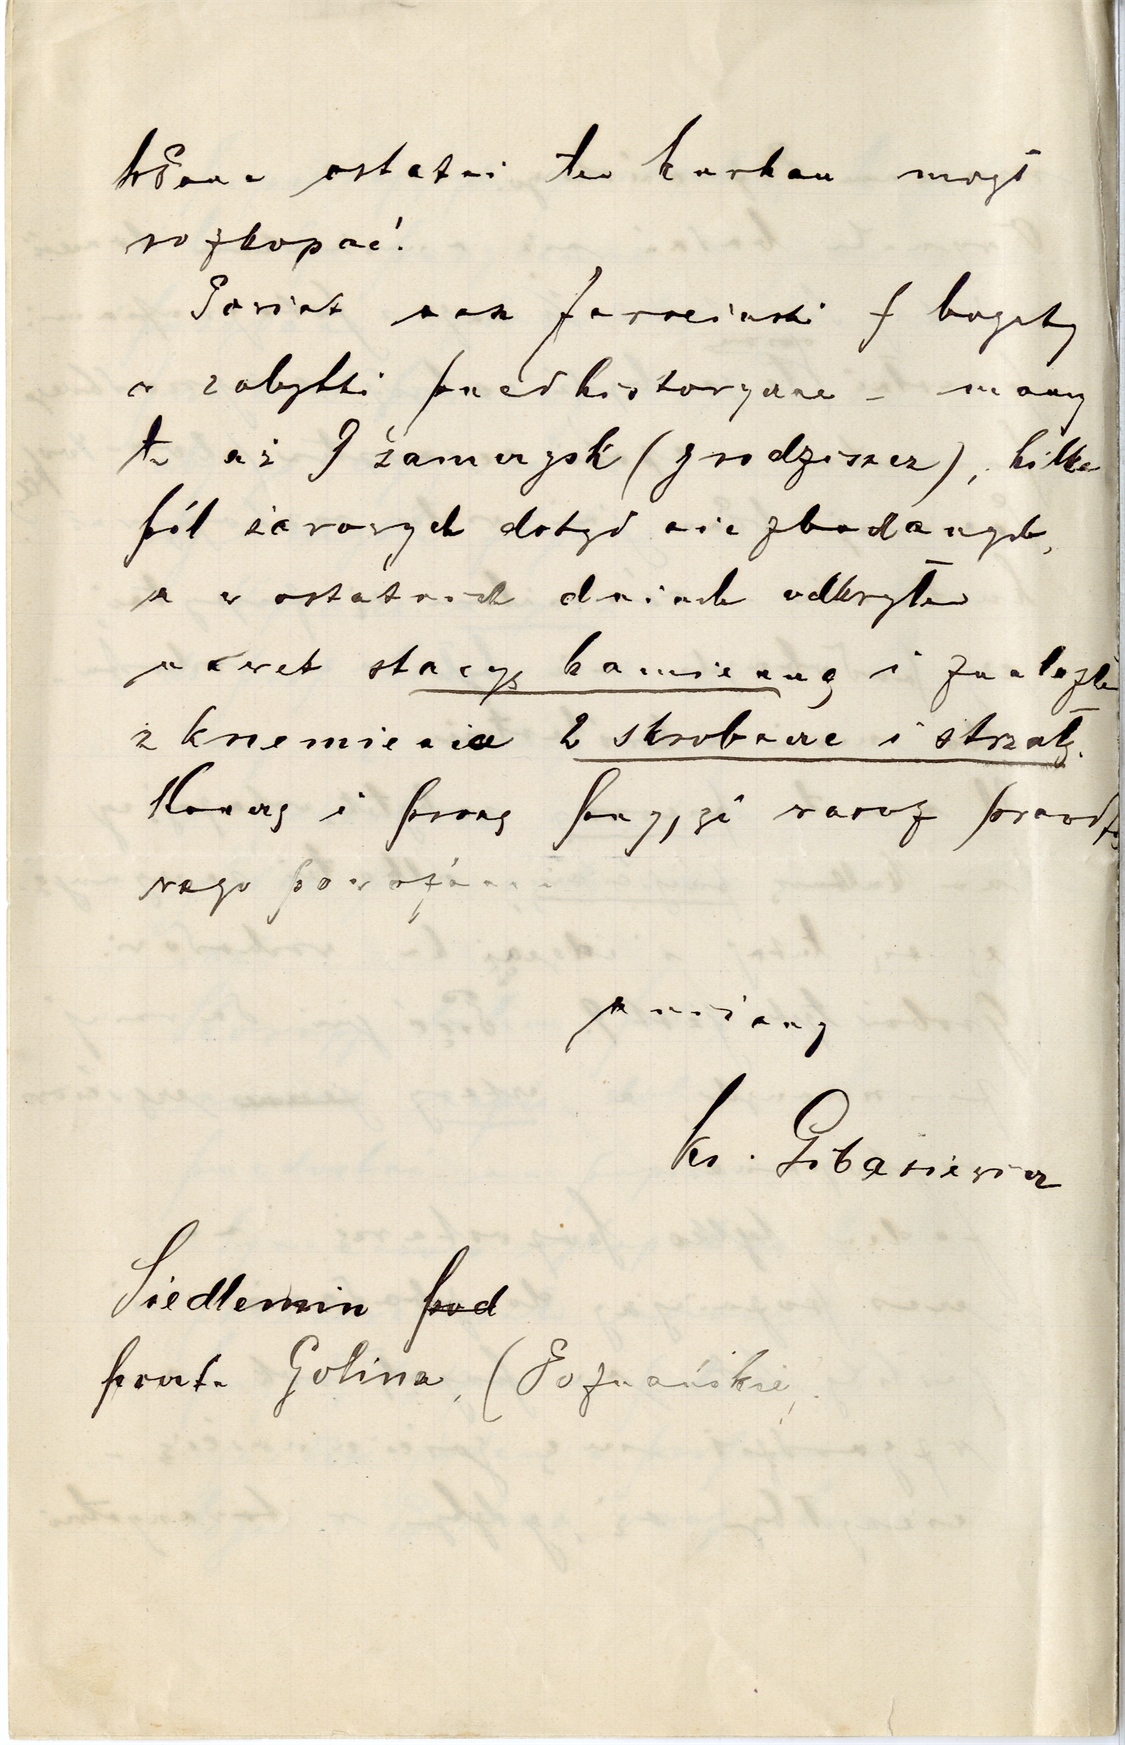 ostatni ten kurhan mógł
rozkopać!
Powiat nasz Jarociński j. bogaty
w zabytki przedhistoryczne – mamy
tu aż 9 zameczysk (grodziszcz), kilka
pól żarowych dotąd nie zbadanych,
a w ostatnich dniach odkryłem
nawet stacyę kamienną i znalazłem
z krzemienia 2 skrobacze i strzałę.
i proszę przyjąć wyraz prawdzi
wego poważania
uniżony
ks. Gibasiewicz
Siedlemin pod
Golina, (Poznańskie)